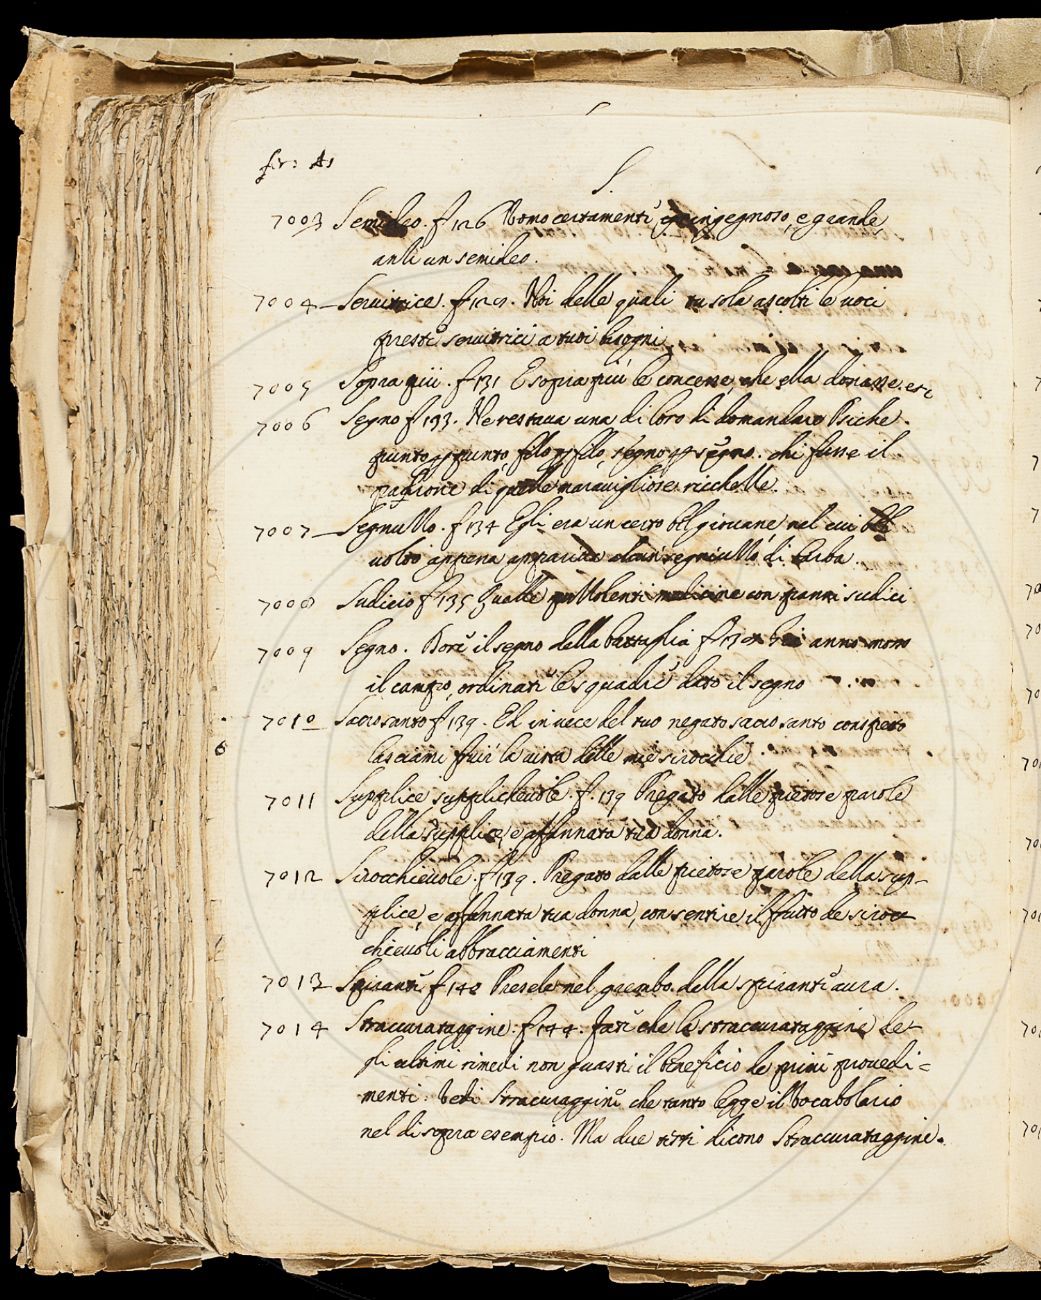 fir: As
S.
7003 Semideo. f 126 Uomo certamente ingegnoso, e grande,
anzi un semideo.
7004 Servitrice. f 127. Noi delle quali tu sola ascolti le voci
preste servitrici a tuoi bisogni
7005 Sopra più. f 131 E sopra più le concesse, che ella donasse. etc
7006 Segno f 133. Ne restava una di loro di domandare Psiche.
punto p punto, filo p filo, segno p segno. chi fusse il
padrone di quelle maravigliose ricchezze.
7007 Segnuzzo. f 134 Egli era un certo bel giovane, nel cui bel
volto appena appariva alcun segniuzzo di barba.
7008 Sudicio f 135 Quelle puzzolenti medicine con panni sudici
7009 Segno. Dare il segno della battaglia f anno
il campo, ordinate le squadre dato il segno
7010 Sacrosanto f 139. Ed in vece del tuo negato sacrosanto cospetto
lasciami fruir la vista delle mie sirocchie
7011 Supplice supplichevole. f. 139 Pregato dalle pietose parole
della supplice, e affannata tua donna.
7012 Sirocchievole. f 139. Pregato dalle pietose parole della sup-
plice, e affannata tua donna, consentile il frutto de siroc-
chievoli abbracciamenti
7013 Spirante f 142 Presela nel grembo della spirante aura.
7014 Straccurataggine. f 144. Fate che la straccurataggine de-
gli ultimi rimedi non guasti il beneficio de primi provedi=
menti: Vedi Stracuraggine che tanto legge il Vocabolario
nel di sopra esempio. Ma due testi dicono Straccurataggine.